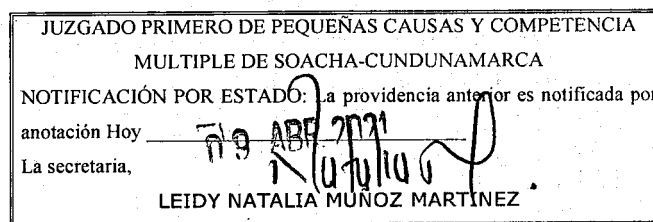 JUZGADO PRIMERO DE PEQUEÑAS CAUSAS Y COMPETENCIA
MULTIPLE DE SOACHA-CUNDUNAMARCA
NOTIFICACIÓN POR ESTADO: La providencia anterior es notificada por
anotación Hoy 09 ABR 2021
La secretaria,
LEIDY NATALIA MUÑOZ MARTINEZ